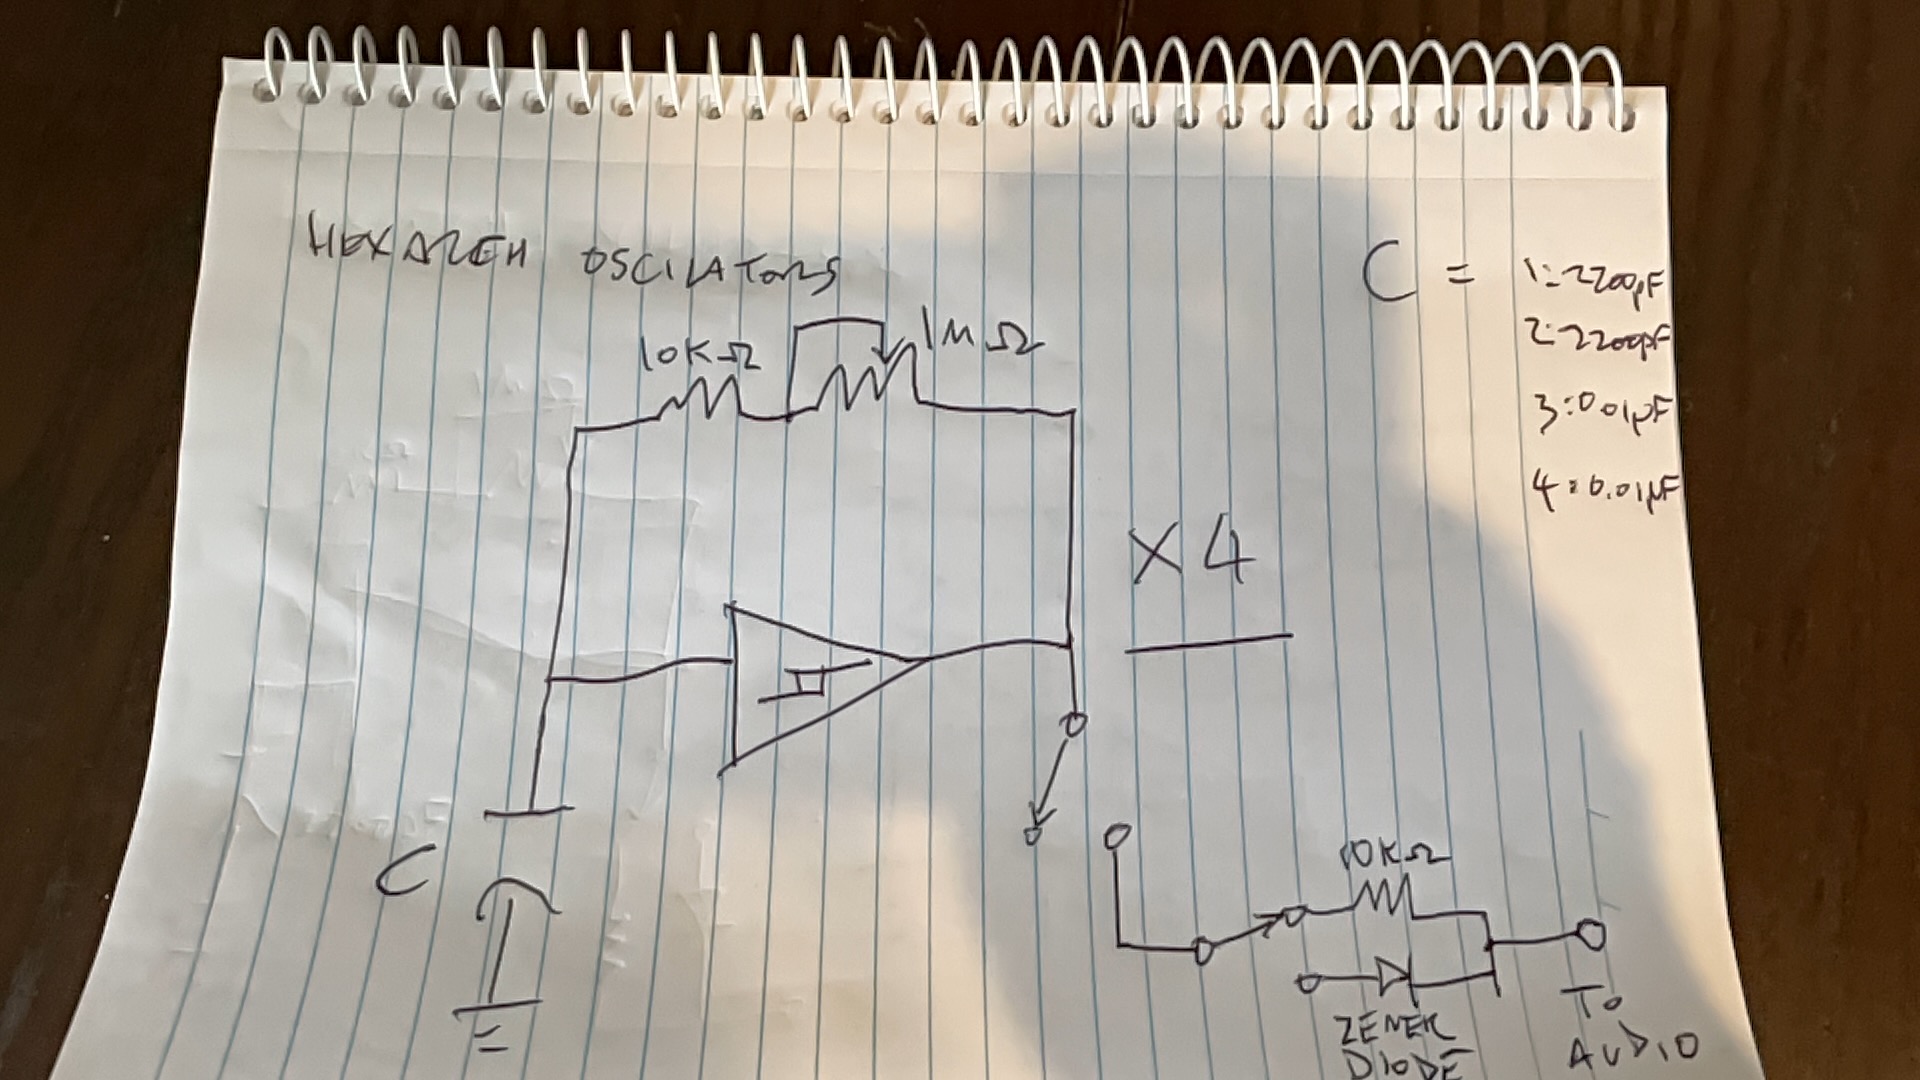 HEXADECA OSCILATORS
C = 1:2200pF
2:2200pF
3:0.01µF
4:0.01µF
10KΩ
1MΩ
X4
C
10KΩ
ZENER
DIODE
TO
AUDIO